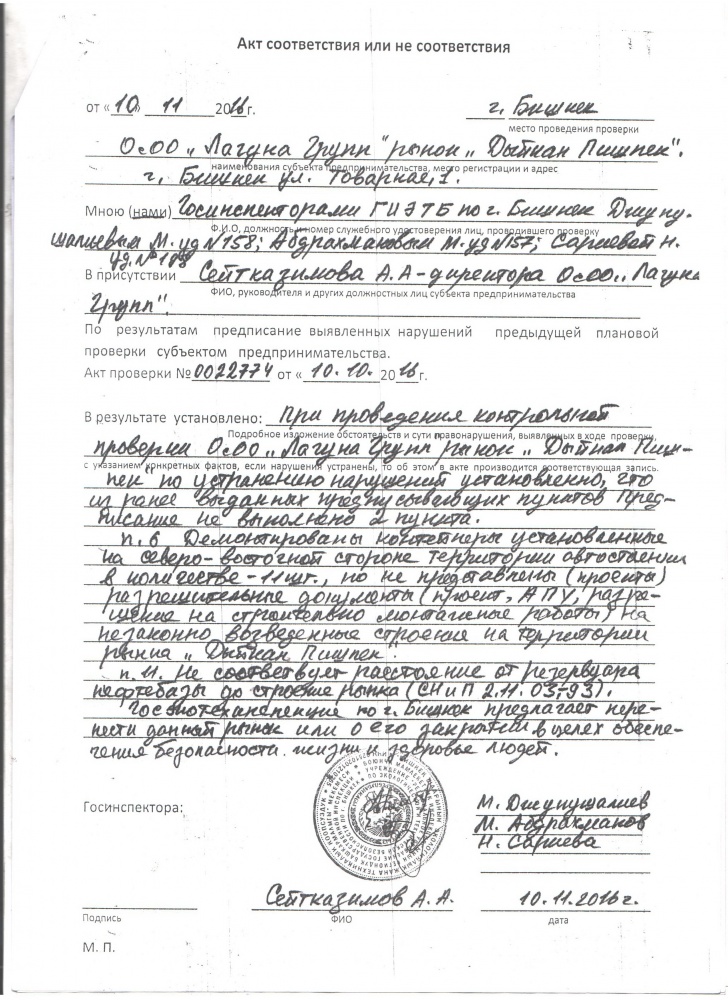 Акт соответствия или не соответствия
от «10» 11 2016г. г. Бишкек
место проведения проверки
ОсОО „Лагуна Групп" рынок „Дыйкан Пишпек".
наименования субъекта предпринимательства, место регистрации и адрес
г. Бишкек ул. Товарная, 1.
Мною (нами) Госинспекторами ГИЭТБ по г. Бишкек Джуну-
Ф.И.О, должность и номер служебного удостоверения лиц, проводившего проверку
шалиевым М. уд №158; Абдрахмановым М. уд №157; Сариевой Н.
уд. №
В присутствии Сейтказимова А.А - директора ОсОО „Лагуна
ФИО, руководителя и других должностных лиц субъекта предпринимательства
Групп".
По результатам предписание выявленных нарушений предыдущей плановой
проверки субъектом предпринимательства.
Акт проверки №0022774 от «10.10.2016г.
В результате установлено: При проведения контрольной
Подробное изложение обстоятельств и сути правонарушения, выявленных в ходе проверки,
проверки ОсОО „Лагуна Групп рынок „Дыйкан Пиш-
с указанием конкретных фактов, если нарушения устранены, то об этом в акте производится соответствующая запись.
пек" по устранению нарушений установленно, что
из ранее выданных предписывающих пунктов Пред-
писание не выполнено 2 пункта.
п. 6 Демонтированы контейнеры установленные
на северо-восточной стороне территории автостоянки
в количестве - 11 шт., но не представлены (проекты)
разрешительные документы (проект, АПУ, разре-
шение на строительно монтажные работы) на
незаконно возведенные строение на территории
рынка „Дыйкан Пишпек".
п. 11. Не соответсвует расстояние от резервуара
нефтебазы до строение рынка (СНиП 2.11.03-93).
Госэкотехинспекция по г. Бишкек предлагает пере-
нести данный рынок или о его закрытии в целях обеспе-
чения безопасности жизни и здоровье людей.
Госинспектора: М. Джунушалиев
М. Абдрахманов
Н. Сариева
Сейтказимов А. А. 10.11.2016 г.
Подпись ФИО дата
М. П.